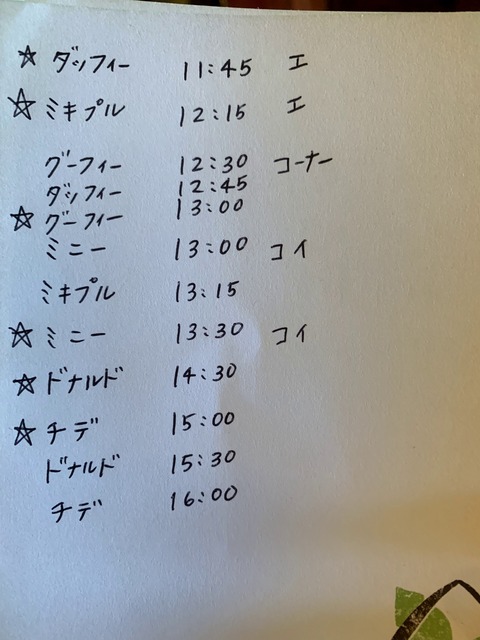 ☆ ダッフィー 11:45 エ
☆ ミキプル 12:15 エ
グーフィー 12:30 コーナー
ダッフィー 12:45
☆ グーフィー 13:00
ミニー 13:00 コイ
ミキプル 13:15
☆ ミニー 13:30 コイ
☆ ドナルド 14:30
☆ チデ 15:00
ドナルド 15:30
チデ 16:00